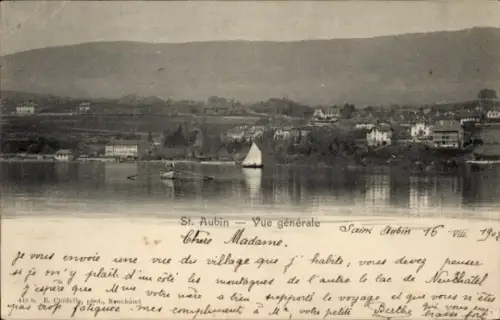 St. Aubin — Vue générale
Saint Aubin 16 VII. 190
Chère Madame.
Je vous envoie une vue du village que j'habite, vous devez penser
si je m'y plaît d'un côté les montagnes de l'autre le lac de Neuchâtel
J'espère que Mme votre mère a bien supporté le voyage et que vous n'êtes
448 b. E. Chiffelle, phot., Neuchâtel
pas trop fatiguée. mes compliments à Mme votre petite Berthe
qui vous embrasse fort